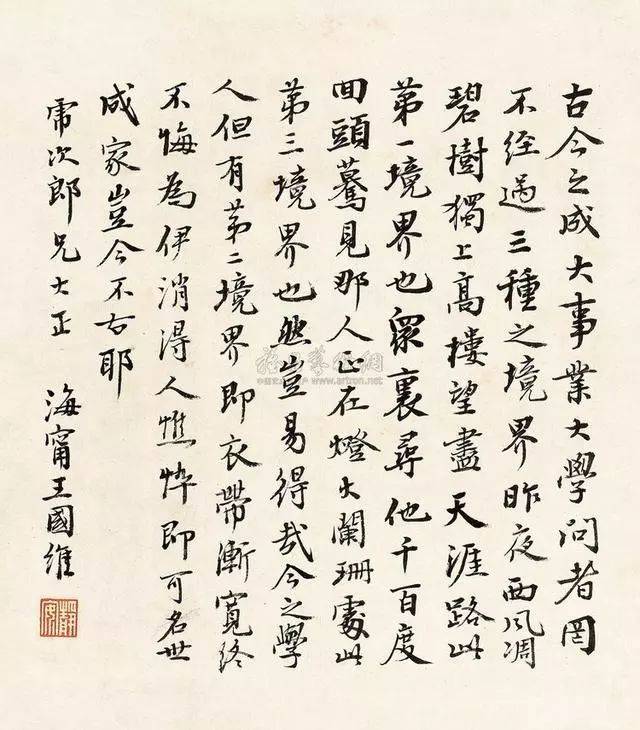 古今之成大事業大學問者罔
不經過三種之境界昨夜西風凋
碧樹獨上高樓望盡天涯路此
第一境界也衆裏尋他千百度
回頭驀見那人正在燈火闌珊處此
第三境界也然豈易得哉今之學
人但有第二境界即衣帶漸寬終
不悔為伊消得人憔悴即可名世
成家豈今不古耶
帚次郎兄大正
海甯王國維
靜安
www.artron.net